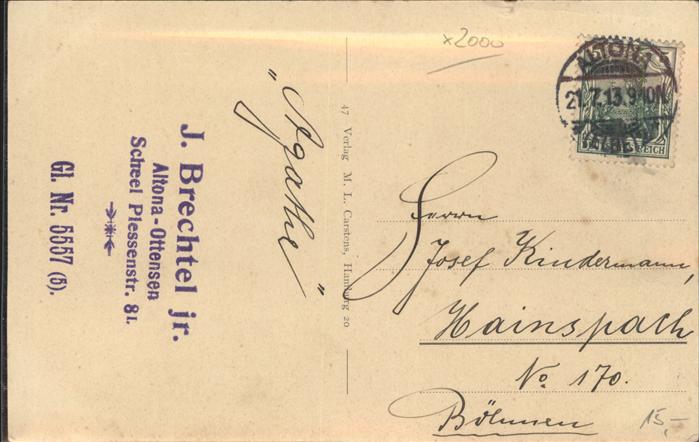 x2000
ALTONA
21.7.13.9-10N.
(ELBE)
REICH
„Agathe"
J. Brechtel jr.
Altona-Ottensen
Scheel Plessenstr. 8 I.
Gl. Nr. 5557 (5).
47 Verlag M. L. Carstens, Hamburg 20
Herrn
Josef Kindermann,
Hainspach
No 170.
Böhmen
15,-